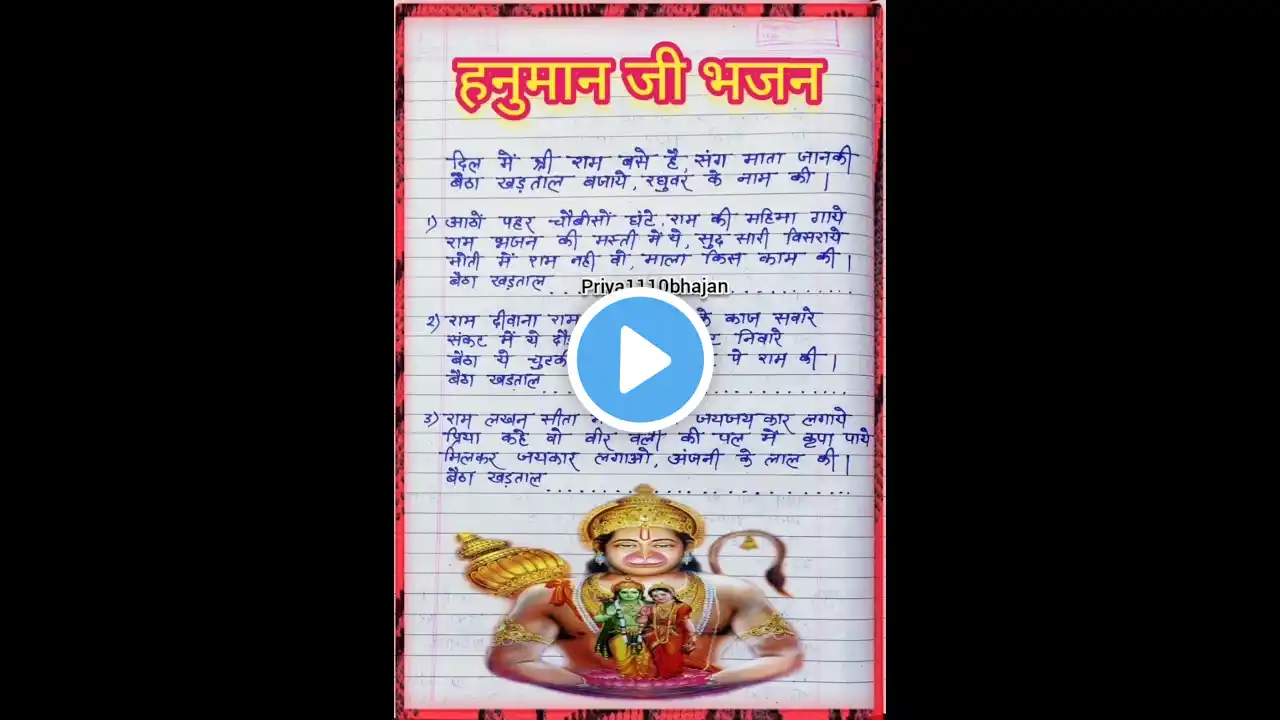 हनुमान जी भजन
दिल में श्री राम बसे है, संग माता जानकी
बैठा खड़ताल बजाये, रघुवर के नाम की |
1) आठों पहर चौबीसों घंटे, राम की महिमा गाये
राम भजन की मस्ती में ये, सुद सारी बिसराये
मोती में राम नही वो, माला किस काम की |
बैठा खड़ताल . . . . . . . . . . . . . . . . . . . . . . . .
Priya1110bhajan
2) राम दीवाना राम के काज सवारे
संकट में ये निवारे
बैठा ये चुटकी पे राम की |
बैठा खड़ताल . . . . . . . . . . . . . . . . . . . . . . . .
3) राम लखन सीता जयजय कार लगाये
प्रिया कहे वो वीर बली की पल में कृपा पाये
मिलकर जयकार लगाओ, अंजनी के लाल की |
बैठा खड़ताल . . . . . . . . . . . . . . . . . . . . . . . .